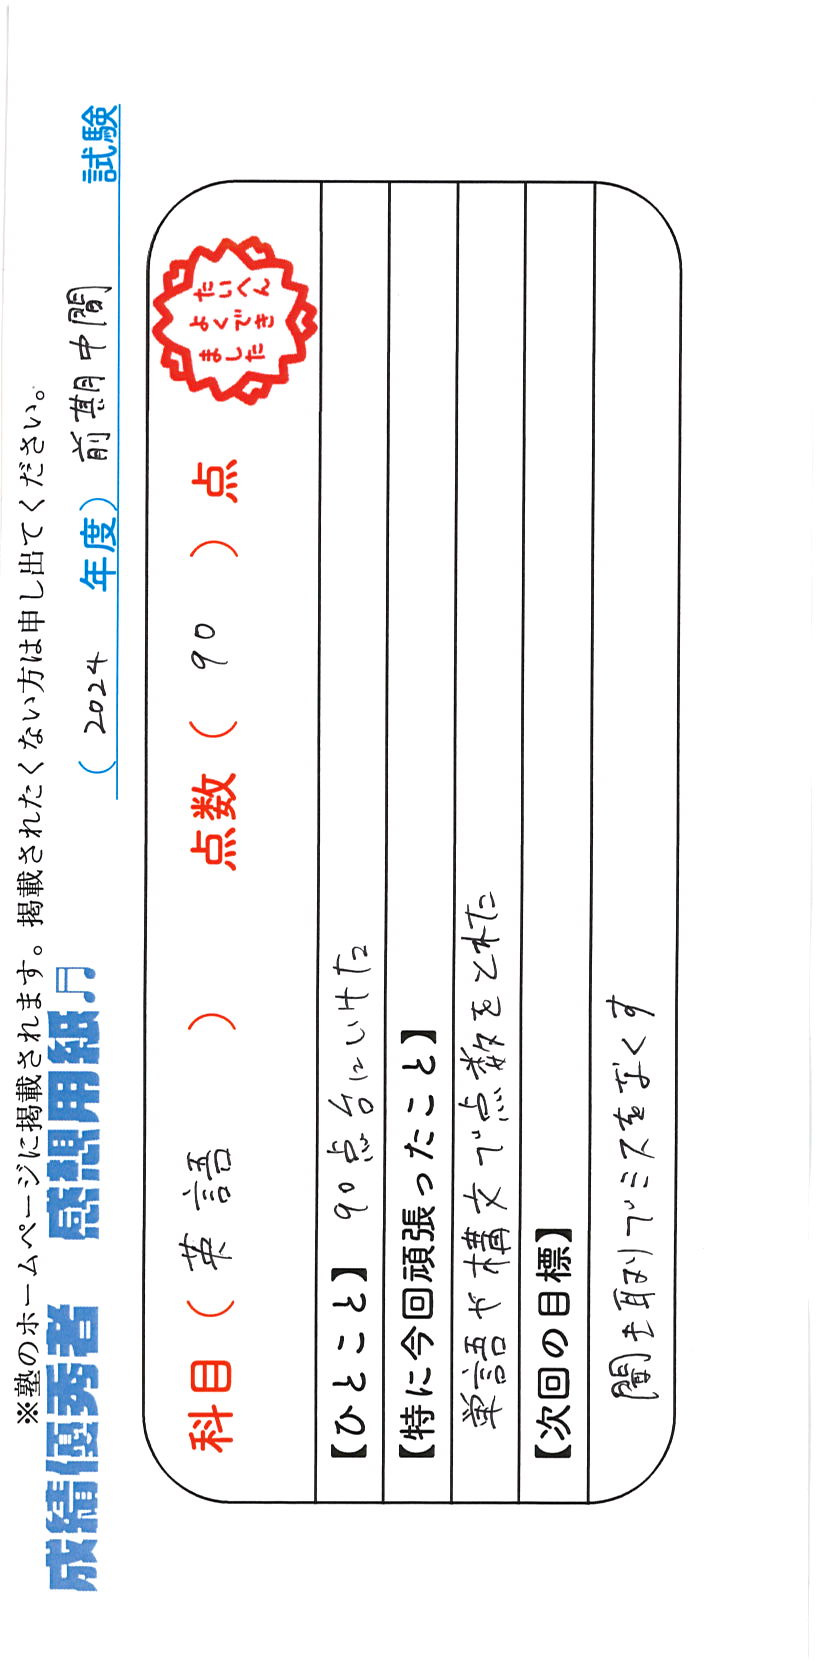 ※塾のホームページに掲載されます。掲載されたくない方は申し出てください。
成績優秀者 感想用紙♫
（ 2024 年度）前期中間 試験
科目（ 英語 ） 点数（ 90 ）点
たいへん
よくでき
ました
【ひとこと】 90点台にいけた
【特に今回頑張ったこと】
単語や構文で点数をとれた
【次回の目標】
聞き取りでミスをなくす